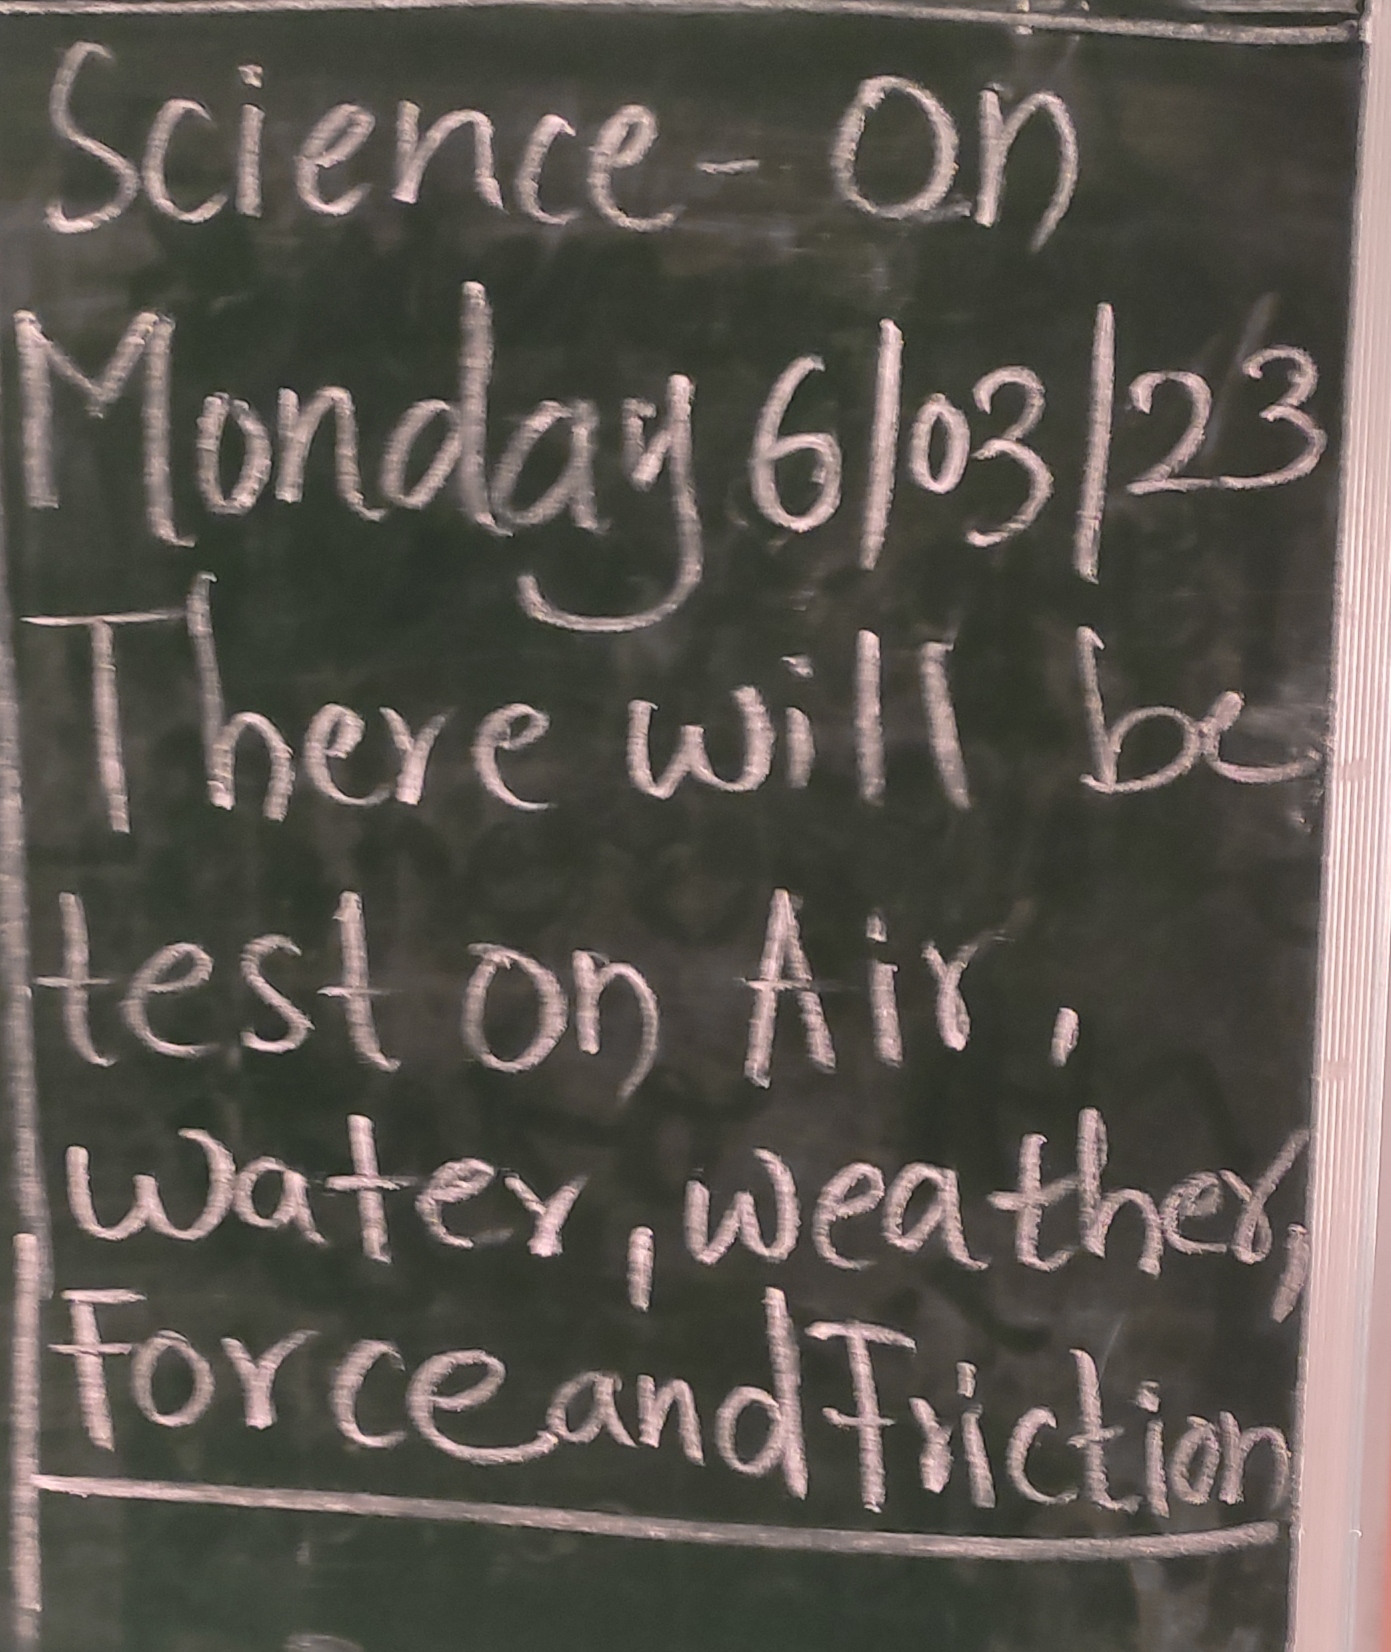 Science - On
Monday 6/03/23
There will be
test on Air,
water, weather,
Force and Friction